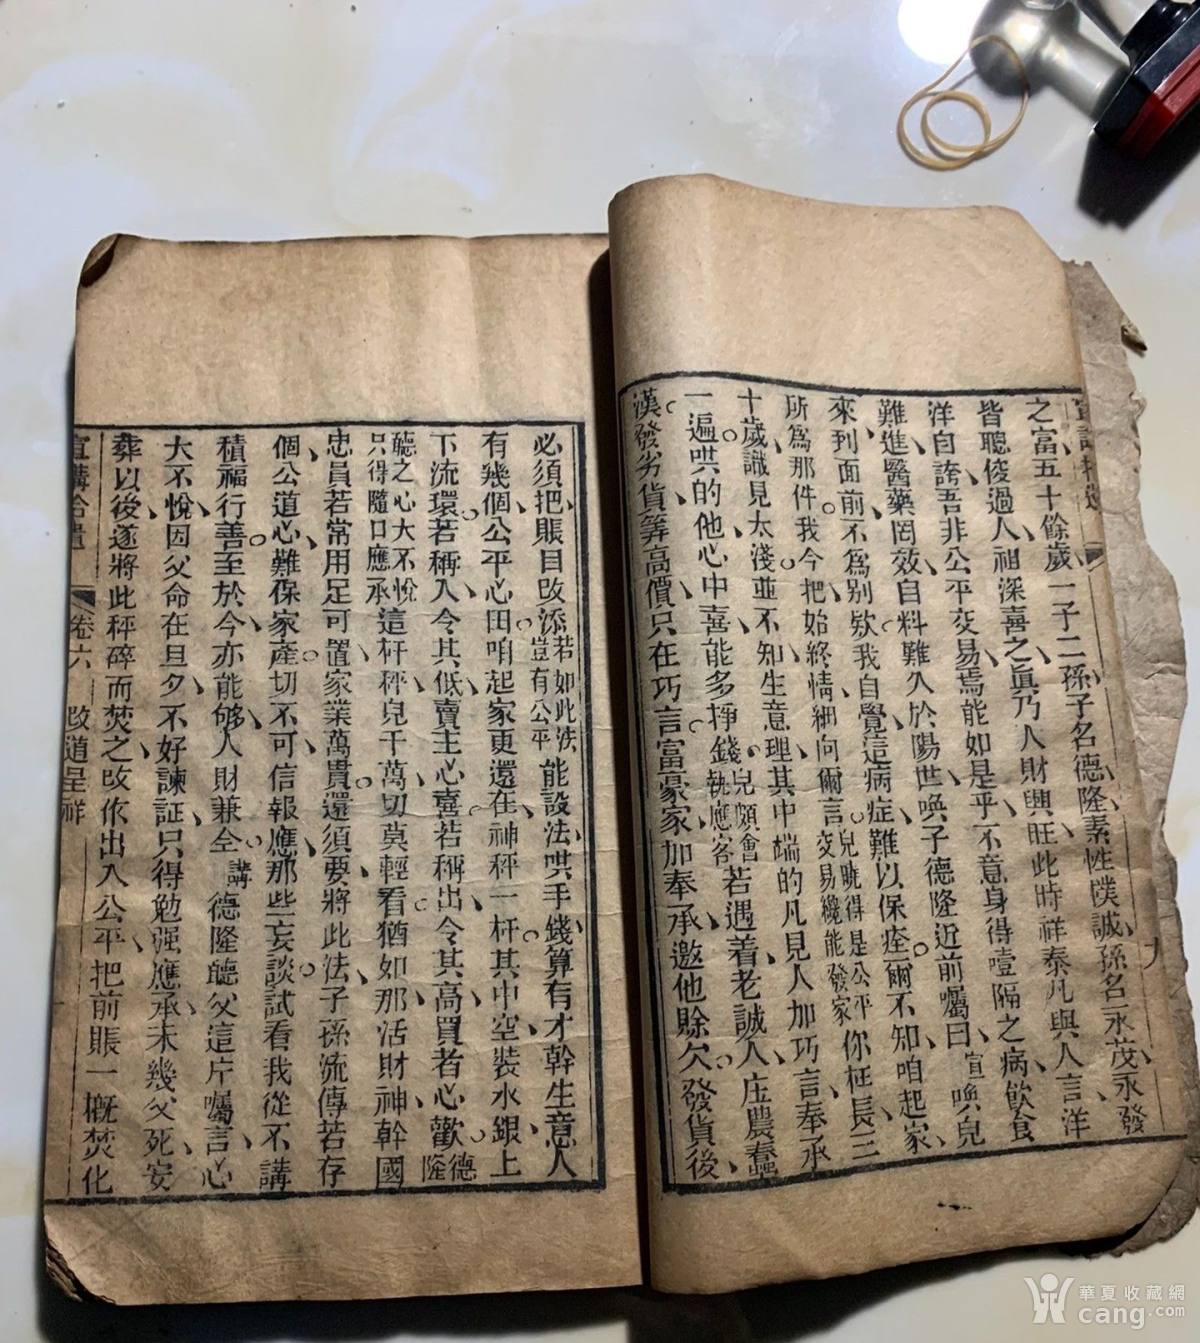 之富五十餘歲一子二孫子名德隆素性僕誠孫名永茂永發
皆聰俊過人祖深喜之眞乃人財興旺此時祥泰凡與人言洋
洋自誇吾非公平交易焉能如是乎不意身得壹隔之病飲食
難進醫藥罔效自料難久於陽世喚子德隆近前囑曰宣喚兒
來到面前不爲別欵我自覺這病症難以保痊爾不知咱起家
所爲那件我今把始終情細向爾言兒曉得是公平交易纔能發家你枉長三
十歲識見太淺並不知生意理其中端的凡見人加巧言奉承
一遍哄的他心中喜能多掙錢兒頗會執應客若遇着老誠人庄農蠢
漢發劣貨筭高價只在巧言富豪家加奉承邀他賒欠發貨後
必須把賬目改添若如此法豈有公平能設法哄手錢算有才幹生意人
有幾個公平心田咱起家更還在神秤一杆其中空裝水銀上
下流環若稱入令其低賣主心喜若稱出令其高買者心歡德隆
聽之心大不悅只得隨口應承這杆秤兒千萬切莫輕看猶如那活財神幹國
忠員若常用足可置家業萬貫還須要將此法子孫流傳若存
個公道心難保家產切不可信報應那些妄談試看我從不講
積福行善至於今亦能够人財兼全講德隆聽父這片囑言心
大不悅因父命在旦夕不好諫証只得勉强應承未幾父死安
葬以後遂將此秤碎而焚之改依出入公平把前賬一概焚化
宣講拾遺
卷六
改道呈祥
華夏收藏網
cang.com